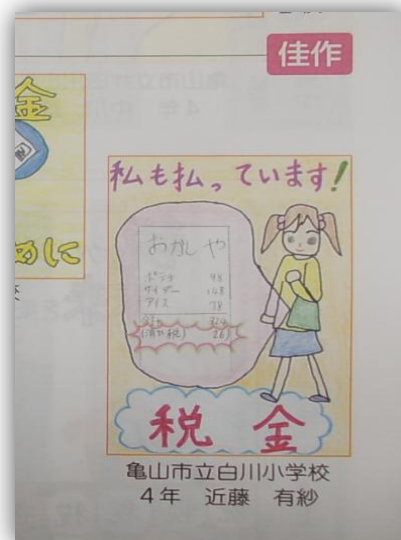 佳作
金
めに
私も払っています!
おかし や
ポテチ 98
サイダー 148
アイス 78
324
(消費税) 26)
税 金
亀山市立白川小学校
4年 近藤 有紗